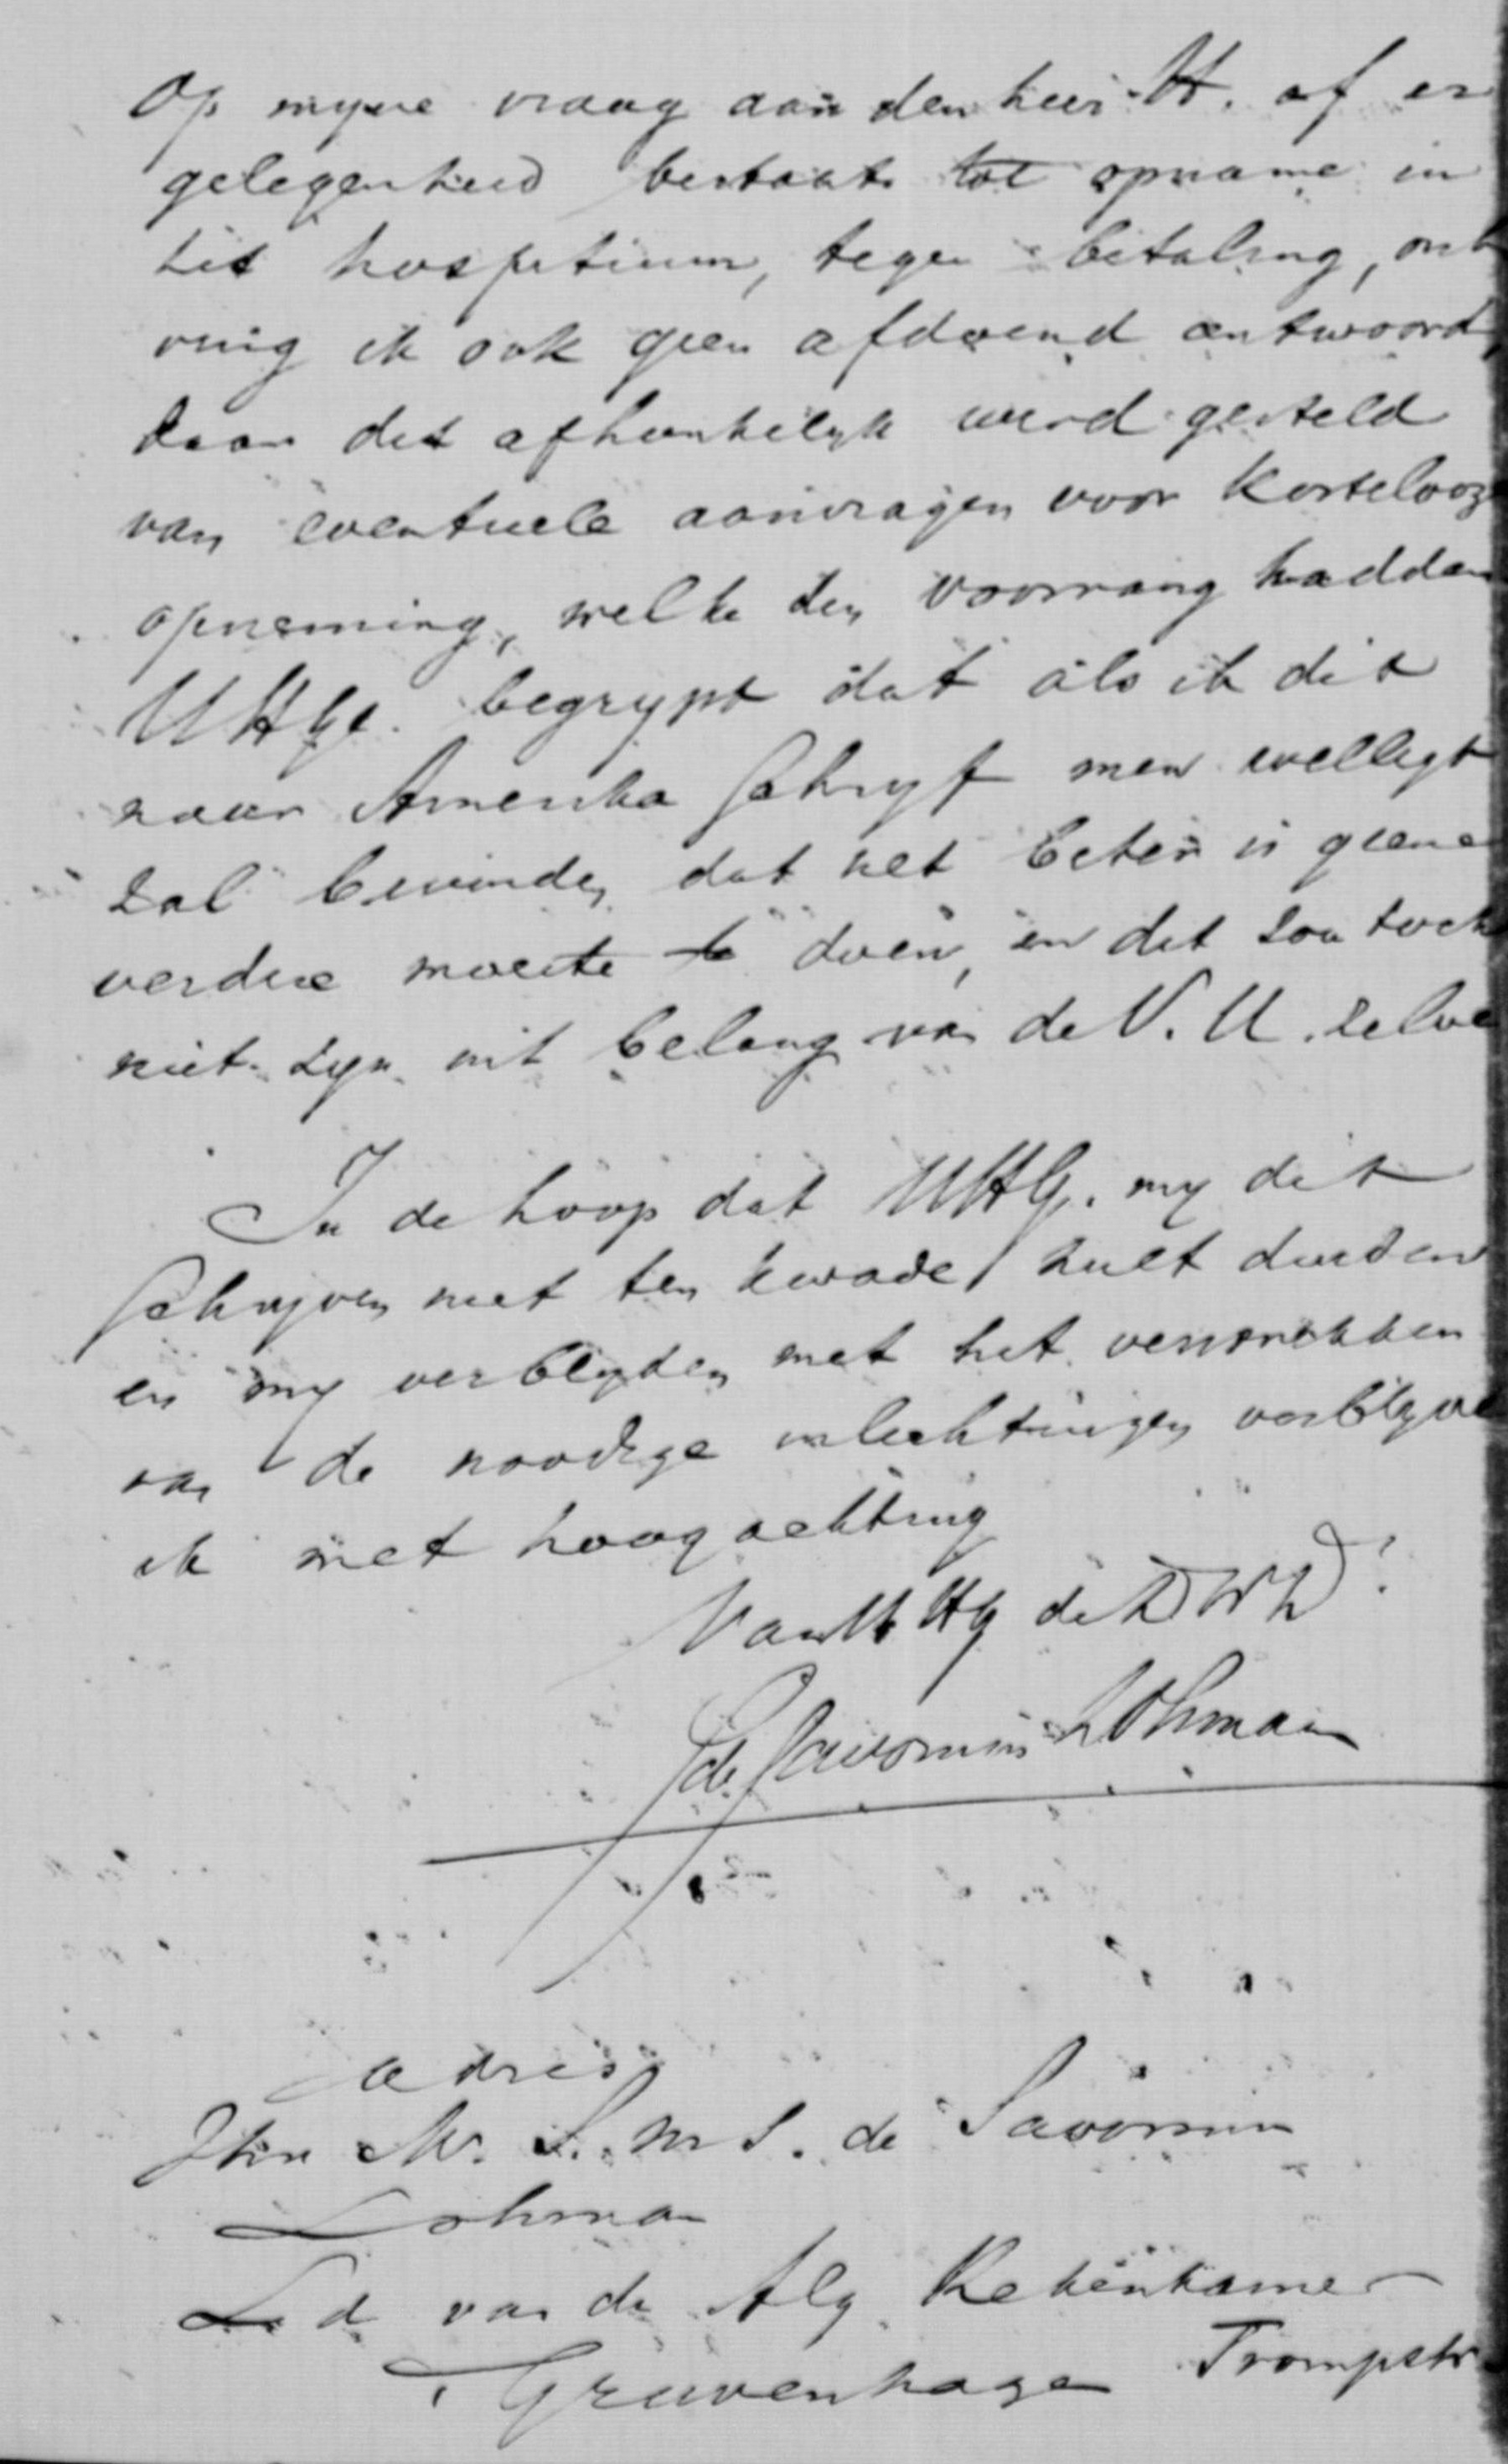 Op myne vraag aan den heer H. of er
gelegenheid bestaat tot opname in
het hospitium, tegen betaling, ont
ving ik ook geen afdoend antwoord,
daar dit afhankelyk werd gesteld
van eventuele aanvragen voor kostelooze
opneming, welke den voorrang hadden
UHG. begrypt dat als ik dit
naar Amerika schryf men welligt
zal bevinden dat het beter is geene
verdere moeite te doen, en dit zou toch
niet zyn int belang van de V. U. zelve
In de hoop dat UHG. my dit
schryven niet ten kwade zult duiden
en my verblyden met het verstrekken
van de noodige inlichtingen verblyve
ik met hoogachting
Van UHG de
de Savornin Lohman
adres
Jhr Mr. S. M S. de Savornin
Lohman
Lid van de Alg Rekenkamer
Gravenhage Trompstr